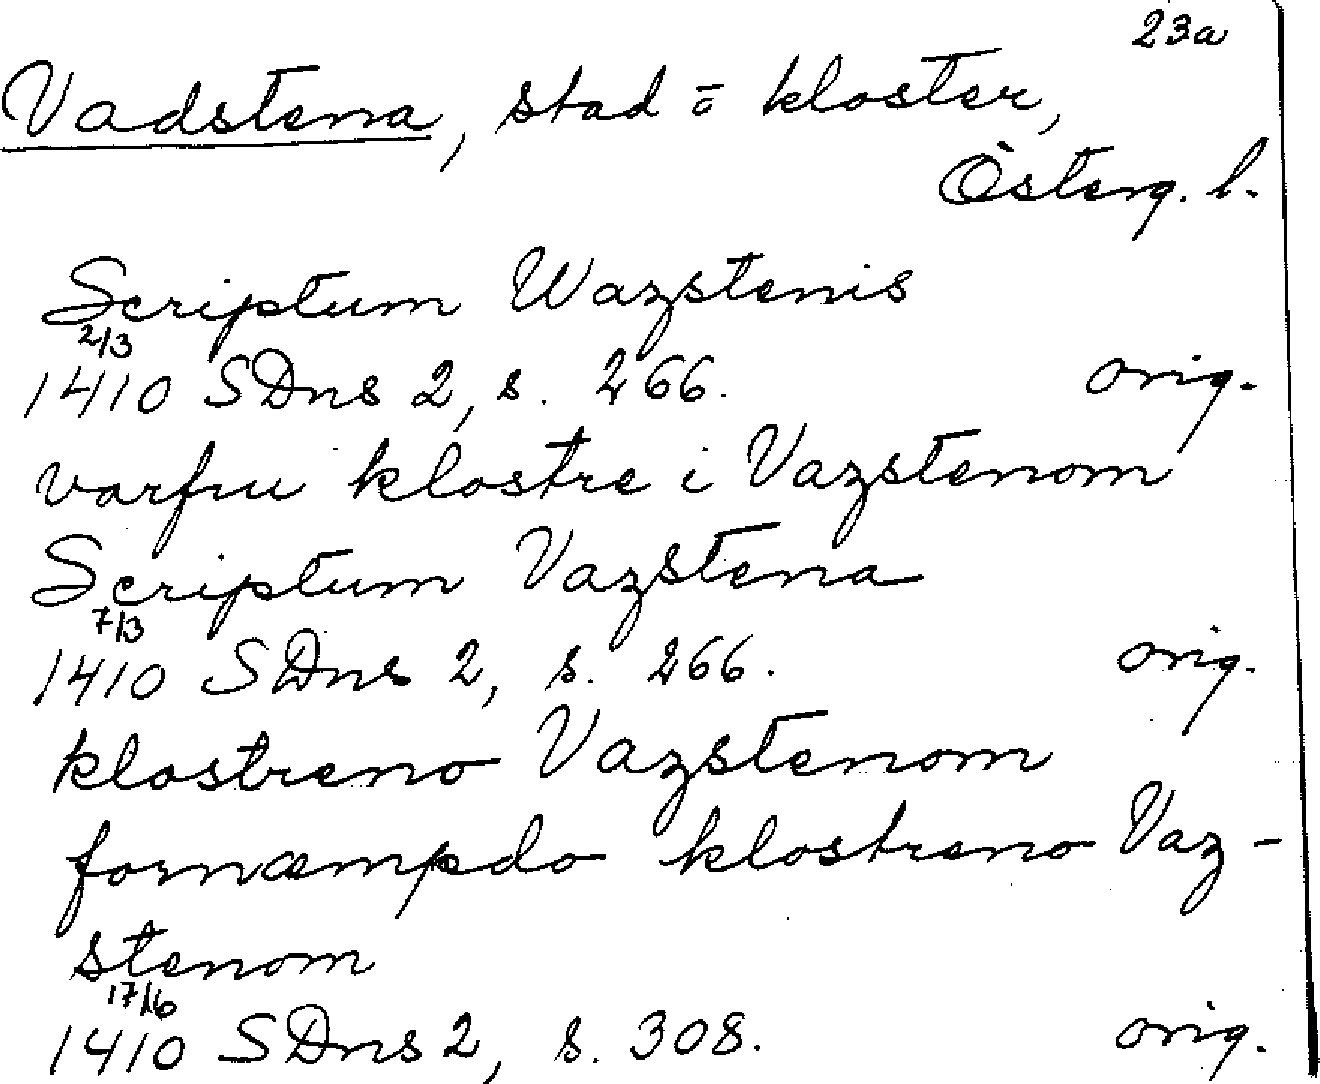 23a
Vadstena, stad o kloster,
Österg. l.
Scriptum Wazstenis
2/3
1410 SDns 2, s. 266. orig.
varfru klostre i Vazstenom
Scriptum Vazstena
7/3
1410 SDns 2, s. 266. orig.
klostreno Vazstenom
fornæmpdo klostreno Vaz-
stenom
17/6
1410 SDns 2, s. 308. orig.